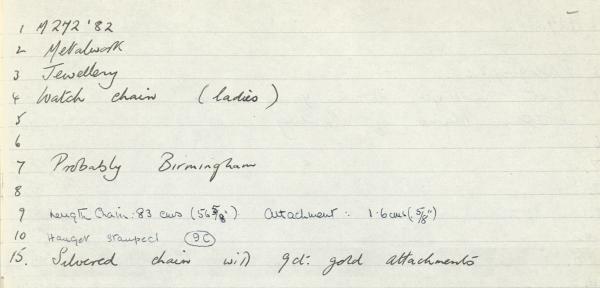 1 M272'82
2 Metalwork
3 Jewellery
4 Watch chain (ladies)
5
6
7 Probably Birmingham
8
9 Length Chain: 83 cms (56 5/8") Attachment: 1.6cms (5/8")
10 Hanger stamped 9C
15. Silvered chain with 9ct. gold attachments